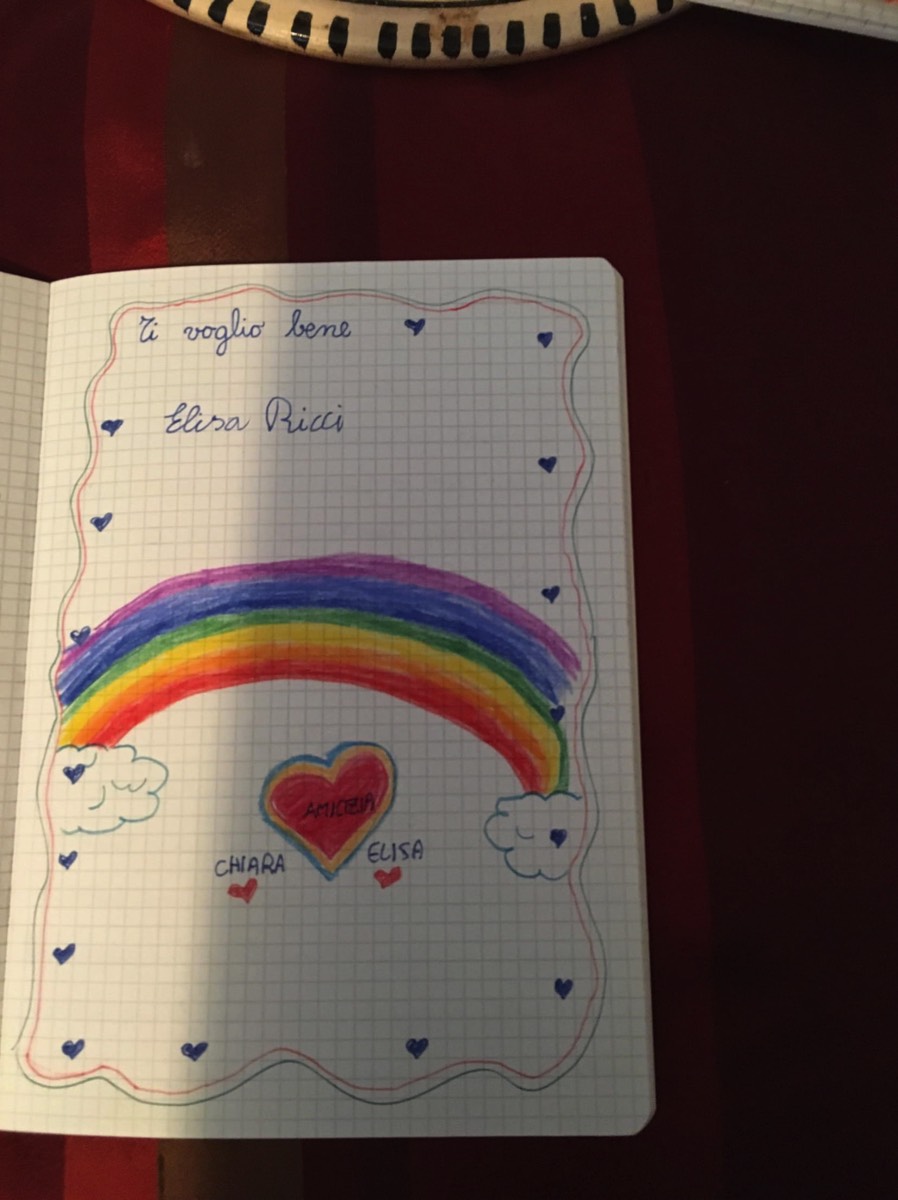 Ti voglio bene
Elisa Ricci
AMICIZIA
CHIARA
ELISA